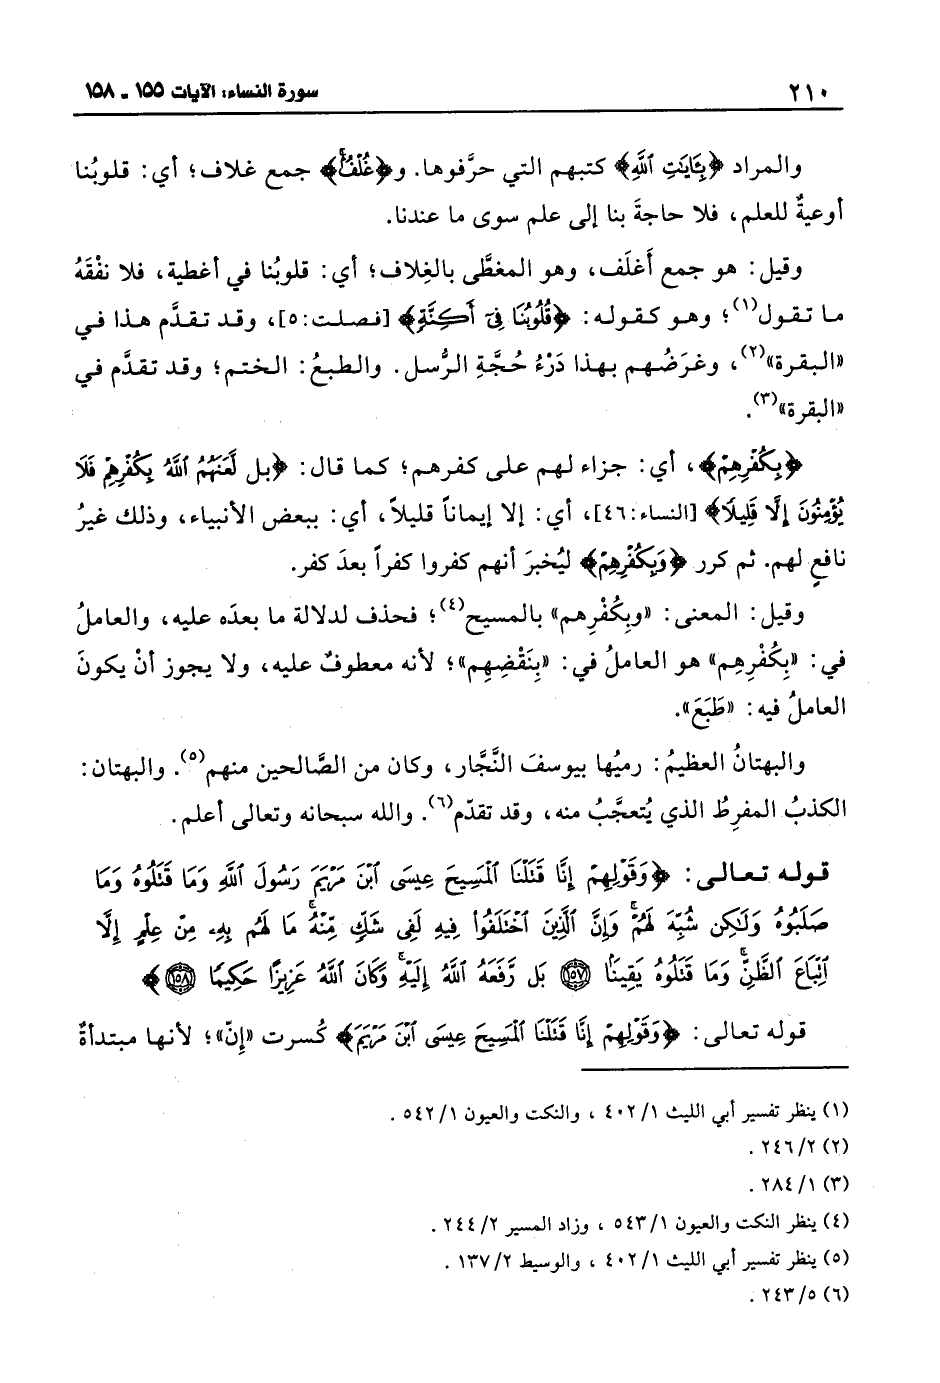 ٢١٠ سورة النساء: الآيات ١٥٥ - ١٥٨
والمراد ﴿بِـَٔايَـٰتِ ٱللَّهِ﴾ كتبهم التي حرَّفوها. و﴿غُلْفٌۢ﴾ جمع غلاف؛ أي: قلوبُنا
أوعيةٌ للعلم، فلا حاجةَ بنا إلى علم سوى ما عندنا.
وقيل: هو جمع أَغلَف، وهو المغطَّى بالغِلاف؛ أي: قلوبُنا في أغطية، فلا نفْقَهُ
ما تقول(١)؛ وهو كقوله: ﴿قُلُوبُنَا فِىٓ أَكِنَّةٍ﴾ [فصلت:٥]، وقد تقدَّم هذا في
«البقرة»(٢)، وغرَضُهم بهذا دَرْءُ حُجَّةِ الرُّسل. والطبعُ: الختم؛ وقد تقدَّم في
«البقرة»(٣).
﴿بِكُفْرِهِمْ﴾، أي: جزاء لهم على كفرهم؛ كما قال: ﴿بل لَّعَنَهُمُ ٱللَّهُ بِكُفْرِهِمْ فَلَا
يُؤْمِنُونَ إِلَّا قَلِيلًا﴾ [النساء:٤٦]، أي: إلا إيماناً قليلاً، أي: ببعض الأنبياء، وذلك غيرُ
نافعٍ لهم. ثم كرر ﴿وَبِكُفْرِهِمْ﴾ ليُخبرَ أنهم كفروا كفراً بعدَ كفر.
وقيل: المعنى: «وبِكُفْرِهم» بالمسيح(٤)؛ فحذف لدلالة ما بعدَه عليه، والعاملُ
في: «بِكُفْرِهِم» هو العاملُ في: «بِنَقْضِهِم»؛ لأنه معطوفٌ عليه، ولا يجوز أنْ يكونَ
العاملُ فيه: «طَبَعَ».
والبهتانُ العظيمُ: رميُها بيوسفَ النَّجَّار، وكان من الصَّالحين منهم(٥). والبهتان:
الكذبُ المفرِطُ الذي يُتعجَّبُ منه، وقد تقدّم(٦). والله سبحانه وتعالى أعلم.
قوله تعالى: ﴿وَقَوْلِهِمْ إِنَّا قَتَلْنَا ٱلْمَسِيحَ عِيسَى ٱبْنَ مَرْيَمَ رَسُولَ ٱللَّهِ وَمَا قَتَلُوهُ وَمَا
صَلَبُوهُ وَلَـٰكِن شُبِّهَ لَهُمْ ۚ وَإِنَّ ٱلَّذِينَ ٱخْتَلَفُوا۟ فِيهِ لَفِى شَكٍّ مِّنْهُ ۚ مَا لَهُم بِهِۦ مِنْ عِلْمٍ إِلَّا
ٱتِّبَاعَ ٱلظَّنِّ ۚ وَمَا قَتَلُوهُ يَقِينًۢا ۝١٥٧ بَل رَّفَعَهُ ٱللَّهُ إِلَيْهِ ۚ وَكَانَ ٱللَّهُ عَزِيزًا حَكِيمًا ۝١٥٨﴾
قوله تعالى: ﴿وَقَوْلِهِمْ إِنَّا قَتَلْنَا ٱلْمَسِيحَ عِيسَى ٱبْنَ مَرْيَمَ﴾ كُسرت «إنّ»؛ لأنها مبتدأةٌ
(١) ينظر تفسير أبي الليث ١/ ٤٠٢ ، والنكت والعيون ١/ ٥٤٢ .
(٢) ٢/ ٢٤٦ .
(٣) ١/ ٢٨٤ .
(٤) ينظر النكت والعيون ١/ ٥٤٣ ، وزاد المسير ٢/ ٢٤٤ .
(٥) ينظر تفسير أبي الليث ١/ ٤٠٢ ، والوسيط ٢/ ١٣٧ .
(٦) ٥/ ٢٤٣ .